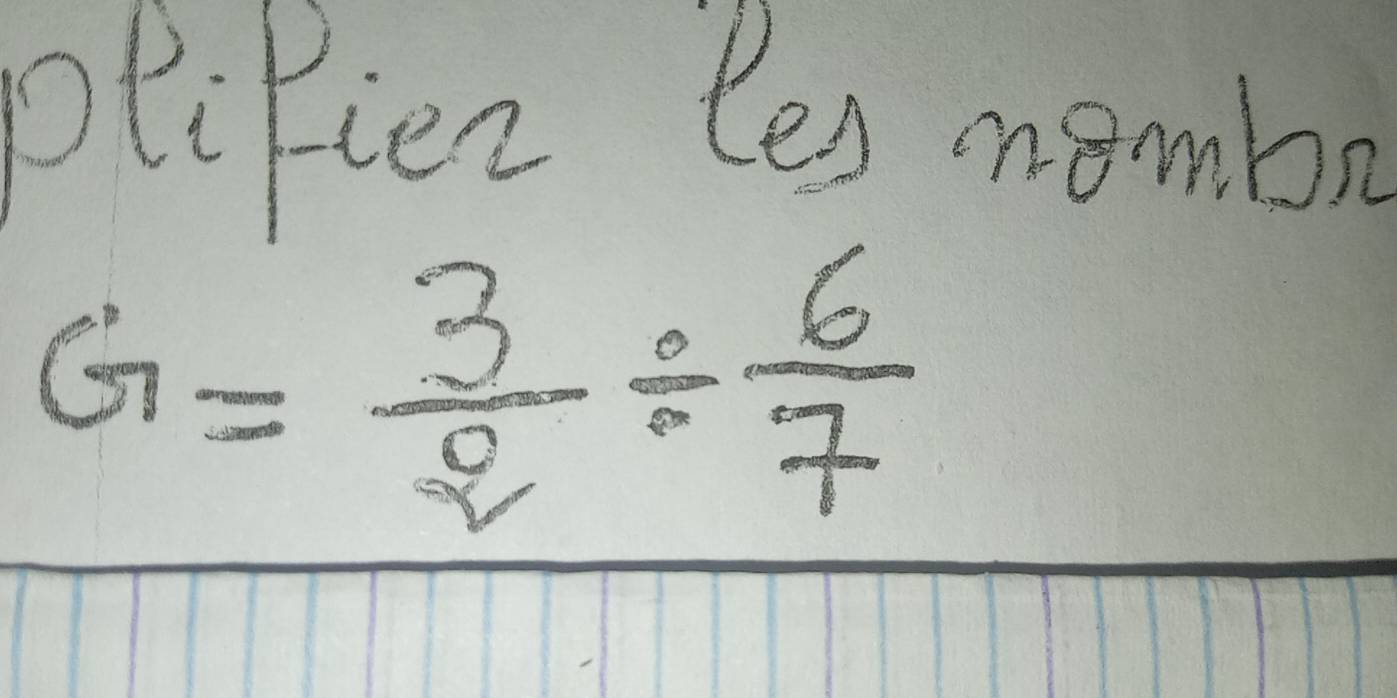 plifier les nombr
G = 3/ ÷ 6/7